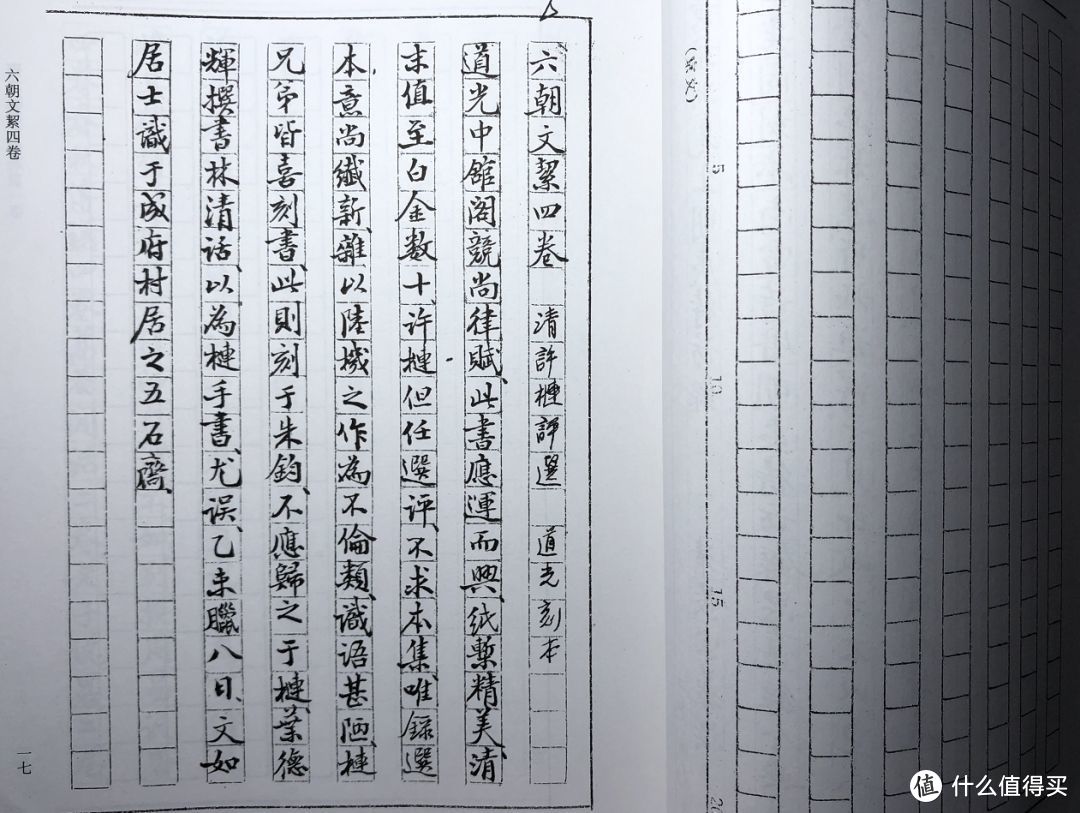 六朝文絜四卷 清許槤評選 道光刻本
道光中舘阁競尚律賦、此書應運而興、纸槧精美、清
末值至白金数十、许槤但任選评、不求本集、唯錄選
本、意尚纖新、雜以陸機之作為不倫類、識语甚陋、槤
兄弟皆喜刻書、此則刻于朱鈞、不應歸之于槤、葉德
輝撰書林清话、以為槤手書、尤误、乙未臘八日、文如
居士識于成府村居之五石齋、
六朝文絜四卷
一七
5
10
15
20
值 什么值得买